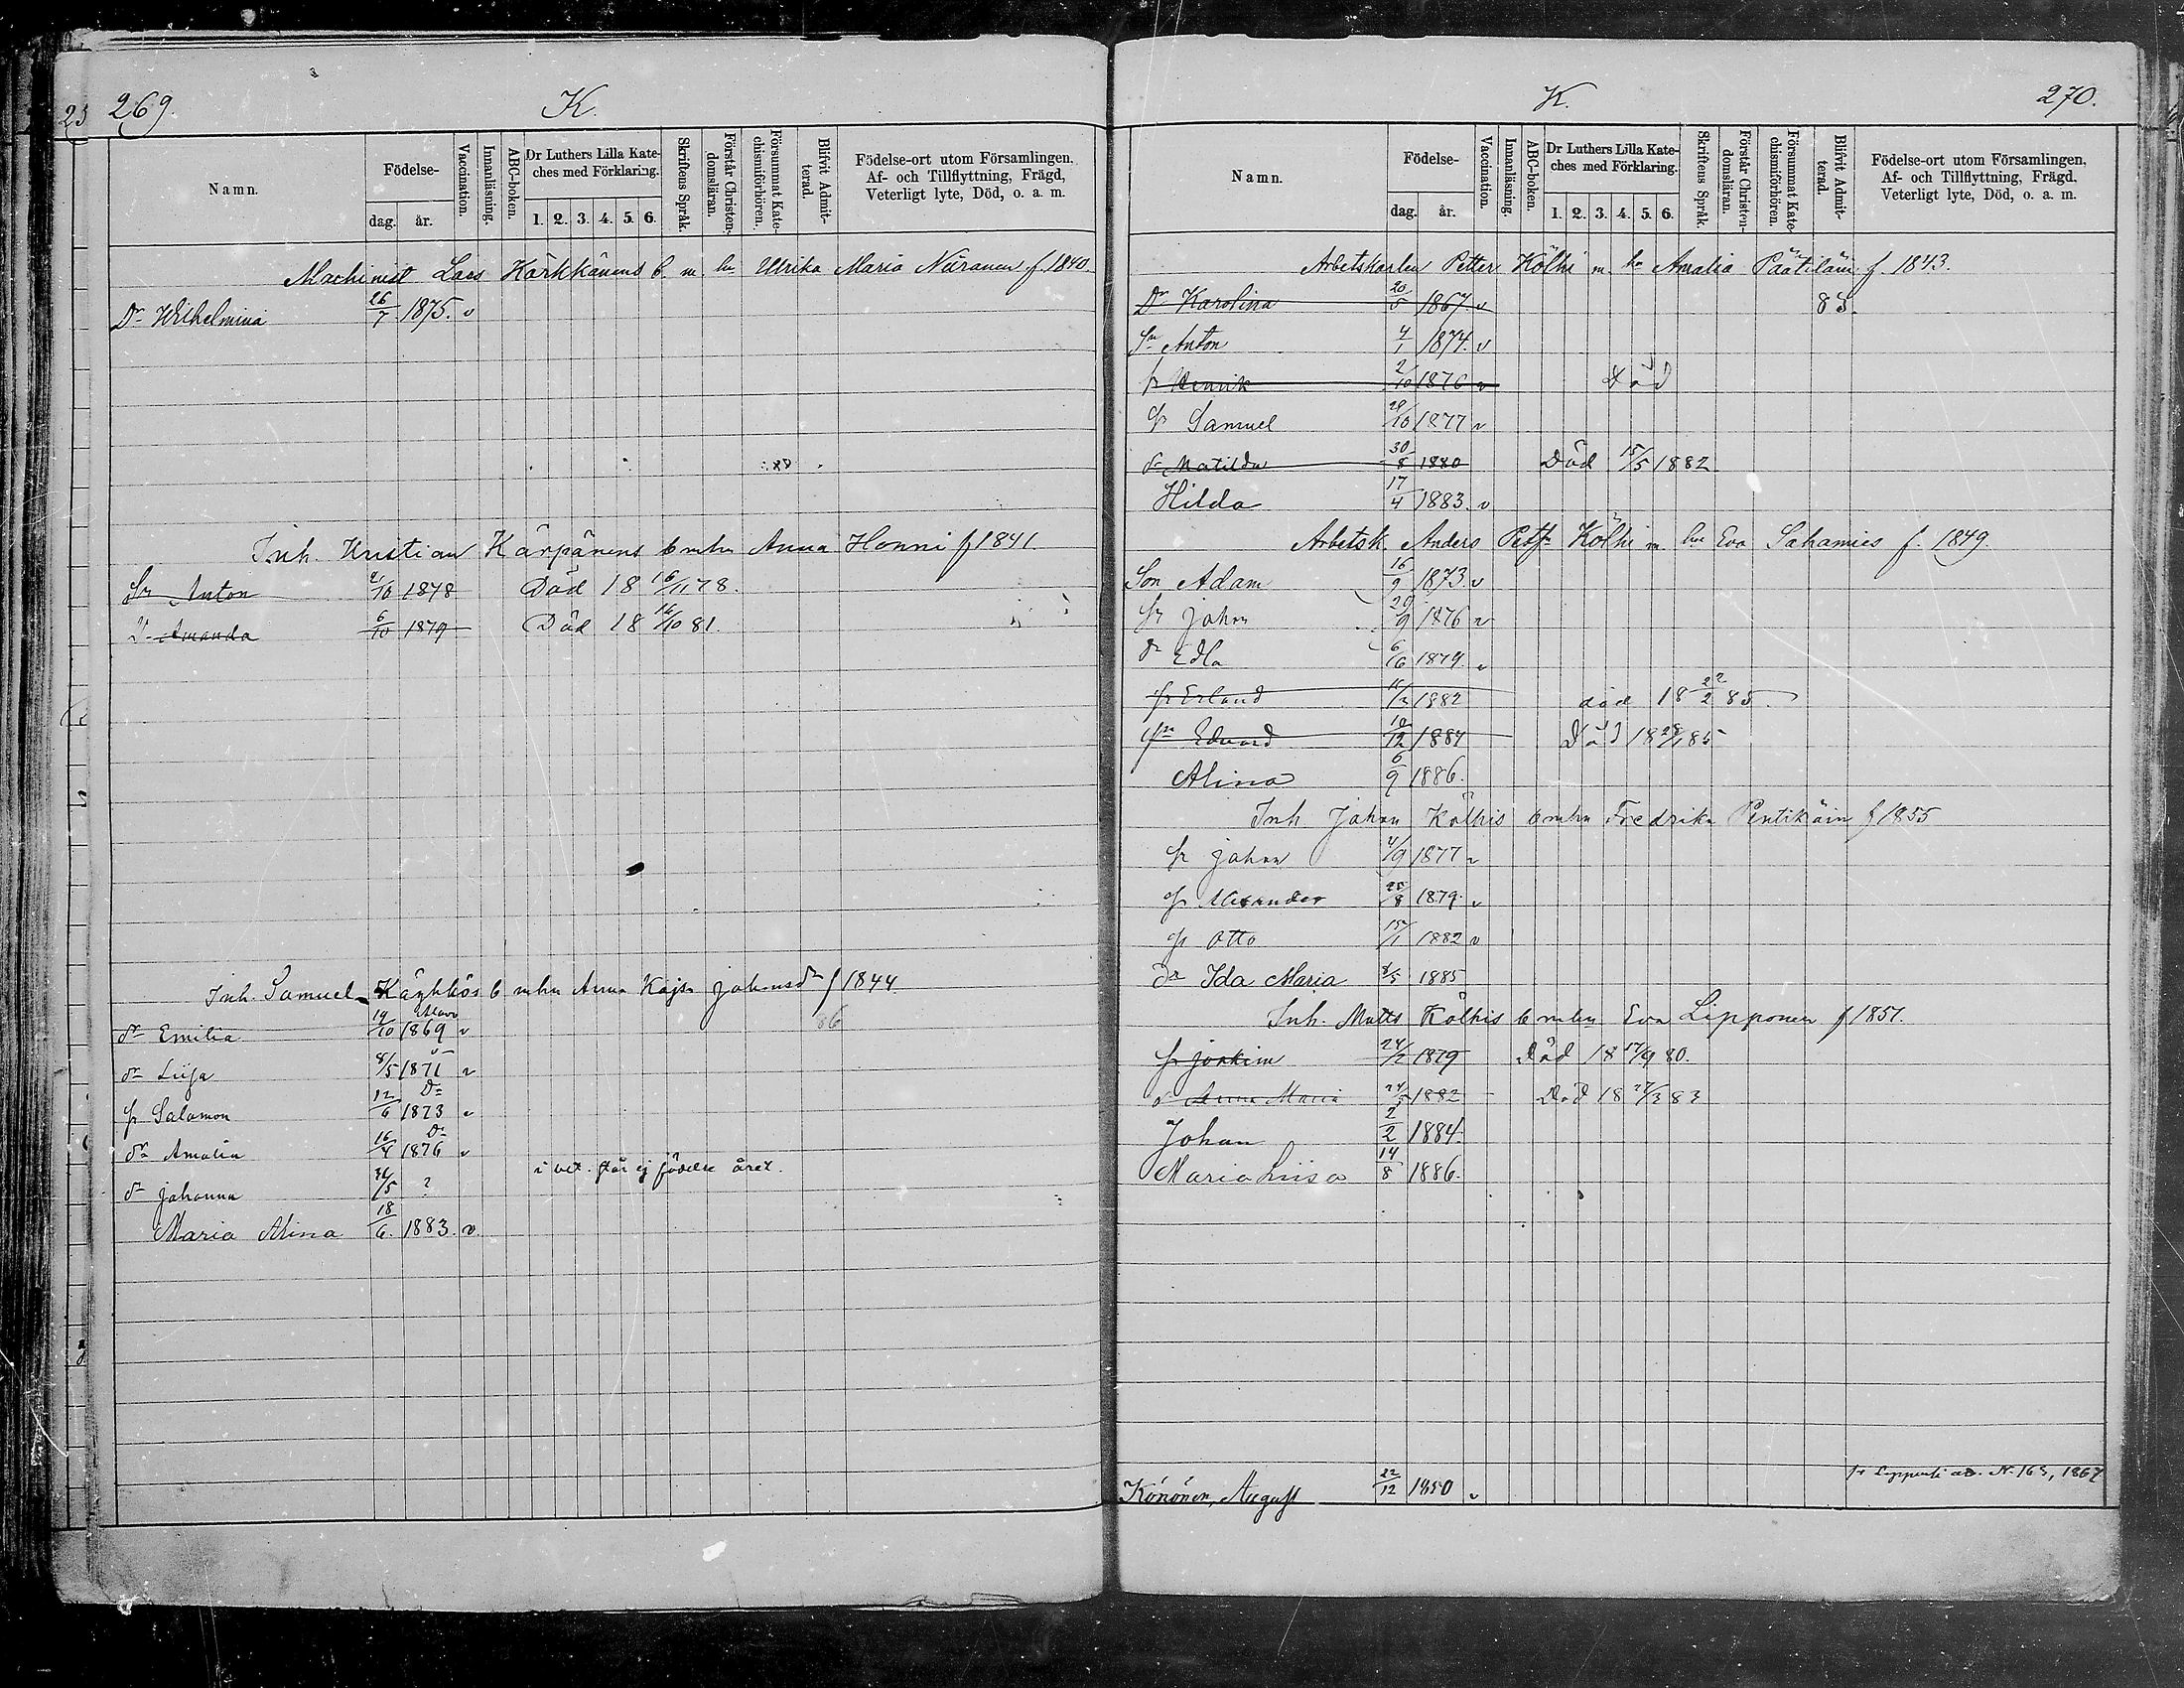 269. K.
Namn. Födelse- dag. år. Vaccination. Innanläsning. ABC-boken. Dr Luthers Lilla Kateches med Förklaring. 1. 2. 3. 4. 5. 6. Skriftens Språk. Förstår Christendomsläran. Försummat Katechismiförhören. Blifvit Admitterad. Födelse-ort utom Församlingen, Af- och Tillflyttning, Frägd, Veterligt lyte, Död, o. a. m.
Machinist Lars Kärkkänens b. m. hu Ulrika Maria Niiranen f. 1840.
Dr Wilhelmina 26/7 1875. v
Inh. Kristian Kärpänens b mhu Anna Honni f 1841.
Sn Anton 2/10 1878 Död 18 16/11 78.
Dr Amanda 6/10 1879 Död 18 16/10 81.
Inh. Samuel Käyhkös b mhu Anna Kajsa Johansdr f 1844
dr Emilia 19/10 1869 v 86
dr Liisa 8/5 1871 v
sn Salomon 12/6 1873 v Do
dr Amalia 16/4 1876 v Do
dr Johanna /5 ? i bet. står ej födelse året.
Maria Alina 18/6. 1883. v.
K. 270.
Namn. Födelse- dag. år. Vaccination. Innanläsning. ABC-boken. Dr Luthers Lilla Kateches med Förklaring. 1. 2. 3. 4. 5. 6. Skriftens Språk. Förstår Christendomsläran. Försummat Katechismiförhören. Blifvit Admitterad. Födelse-ort utom Församlingen, Af- och Tillflyttning, Frägd, Veterligt lyte, Död, o. a. m.
Arbetskarlen Petter Kölhi m. hu Amalia Päätiläin f. 1843.
Dr Karolina 20/5 1867. v 83.
Sn Anton 4/1 1874. v
sn Henrik 2/10 1876 v Död
sn Samuel 28/10 1877 v
dr Matilda 30/8 1880 Död 15/5 1882
Hilda 17/4 1883. v
Arbetsk. Anders Petf Kölhi m. hu Eva Sahamies f. 1849.
Son Adam 16/9 1873. v
sn Johan 20/9 1876 v
dr Edla 6/6 1879. v
sn Erland 11/3 1882 död 18 22/2 85.
sn Edvard 10/12 1884 Död 18 28/1 85
Alina 6/9 1886.
Inh Johan Kölhis b mhu Fredrika Pentikäin f 1855
sn Johan 4/9 1877 v
sn Alexander 28/8 1879. v
sn Otto 15/1 1882 v
dr Ida Maria 8/5 1885
Inh. Matts Kölhis b mhu Eva Lipponen f 1851.
sn Joakim 24/2 1879 Död 18 17/9 80.
dr Anna Maria 24/5 1882 Död 18 27/3 83
Johan 2/2 1884.
Maria Liisa 14/8 1886.
Könönen, August 22/12 1850 v N. 163, 1867